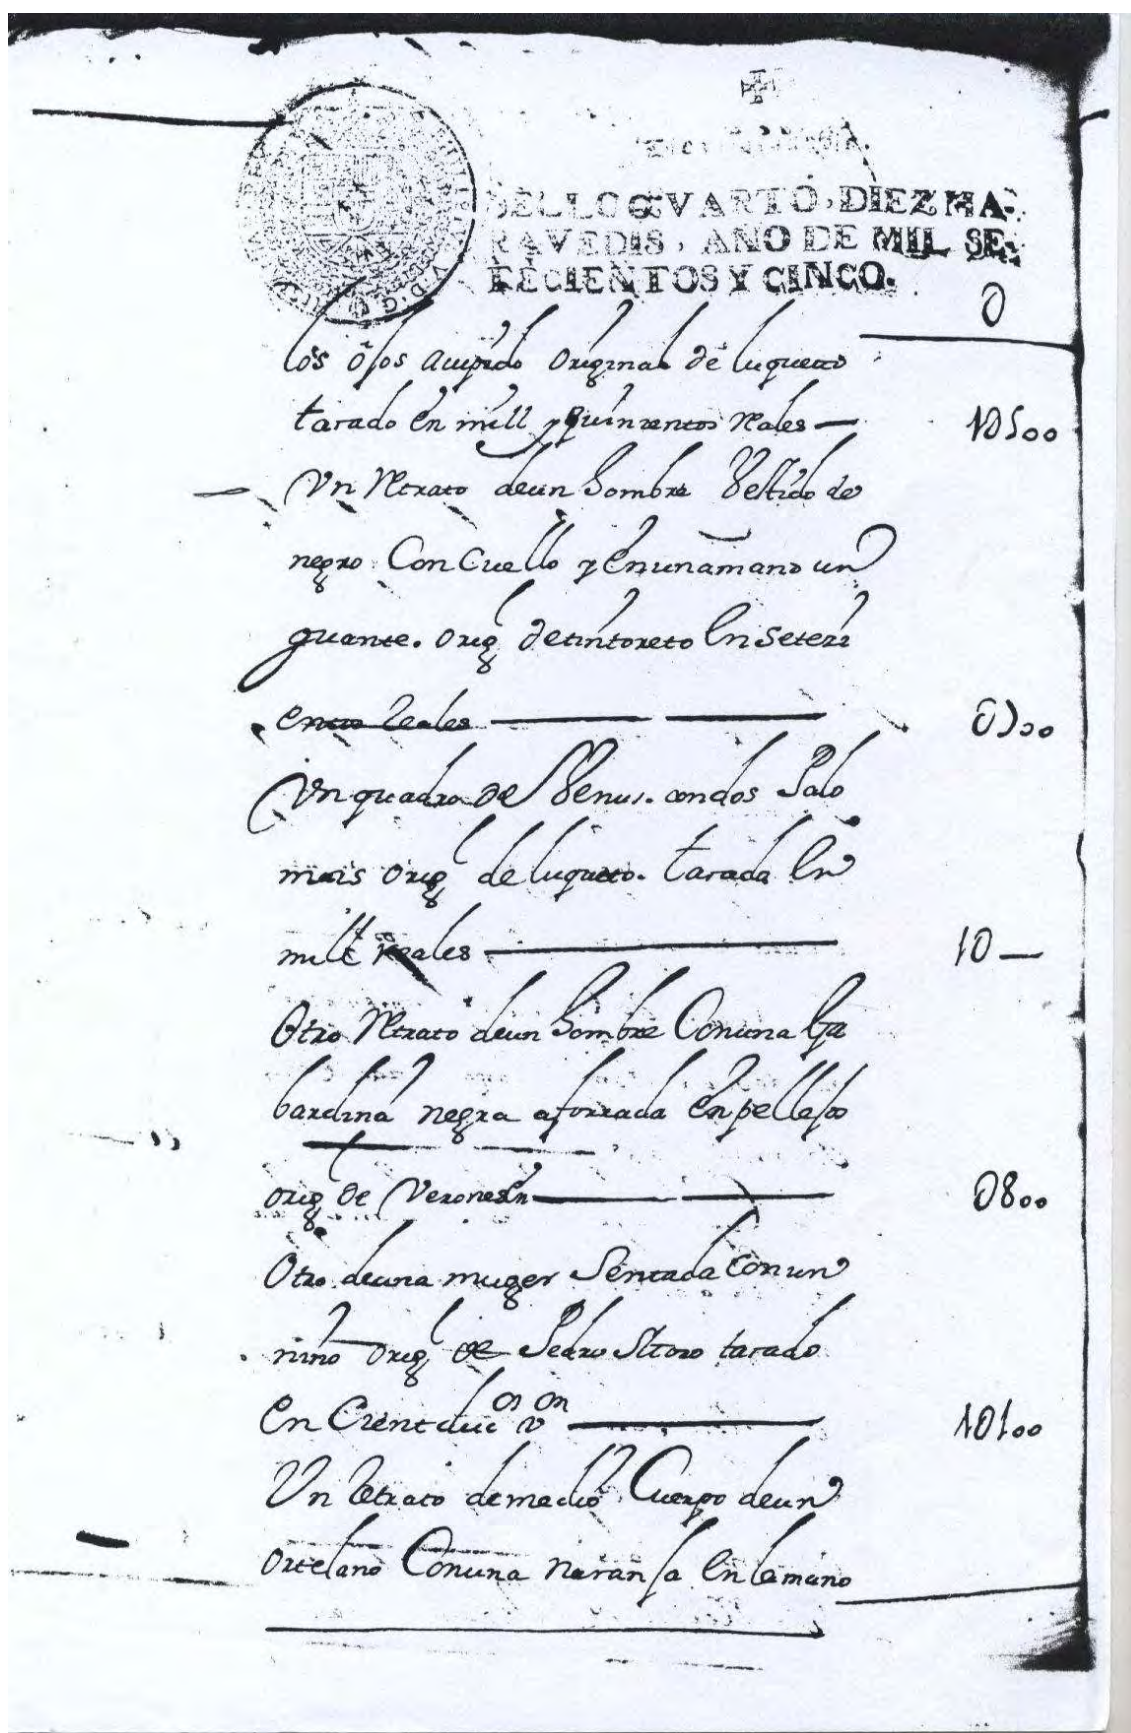 SELLO QVARTO, DIEZ MA-
RAVEDIS, AÑO DE MIL SE-
TECIENTOS Y CINCO.
0
los ojos acupido Original de luqueto
tasado en mill y quinientos Reales — 1U500
Un Retrato deun hombre Vestido de
negro Con Cuello y en una mano un
guante. orig^l de tintoreto en seteci
entos Reales — U700
Un quadro de Venus. con dos Palo
mas orig^l de luqueto. tasada en
mill Reales — 1U—
Otro Retrato deun hombre Con una ga
bardina negra aforrada en pellejos
orig^l de Verones en — U800
Otro de una muger Sentada con un
niño orig^l de Pedro tasado
en Cient duc^os v^on — 1U100
Un Retrato de medio Cuerpo de un
ortelano Con una naranja en la mano